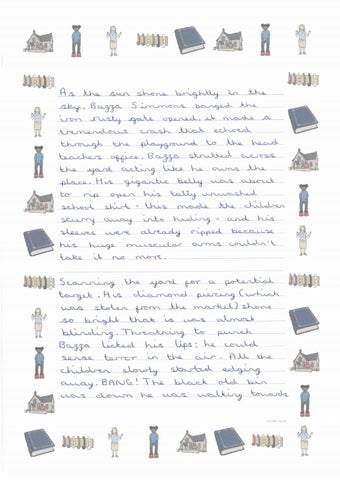 As the sun shone brightly in the
sky. Bazza Simmons banged the
iron rusty gate opened, it made a
tremendous crash that echoed
through the playground to the head
teachers office. Bazza strutted across
the yard acting like he owns the
place. His gigantic belly was about
to rip open his tatty unwashed
school shirt - this made the children
scurry away into hiding - and his
sleeves were already ripped because
his huge muscular arms couldn't
take it no more.
Scanning the yard for a potential
target. His diamond piercing (which
was stolen from the market) shone
so bright that is was almost
blinding. Threatning to punch
Bazza licked his lips; he could
sense terror in the air. All the
children slowly started edging
away. BANG! The black old bin
was down he was walking towards